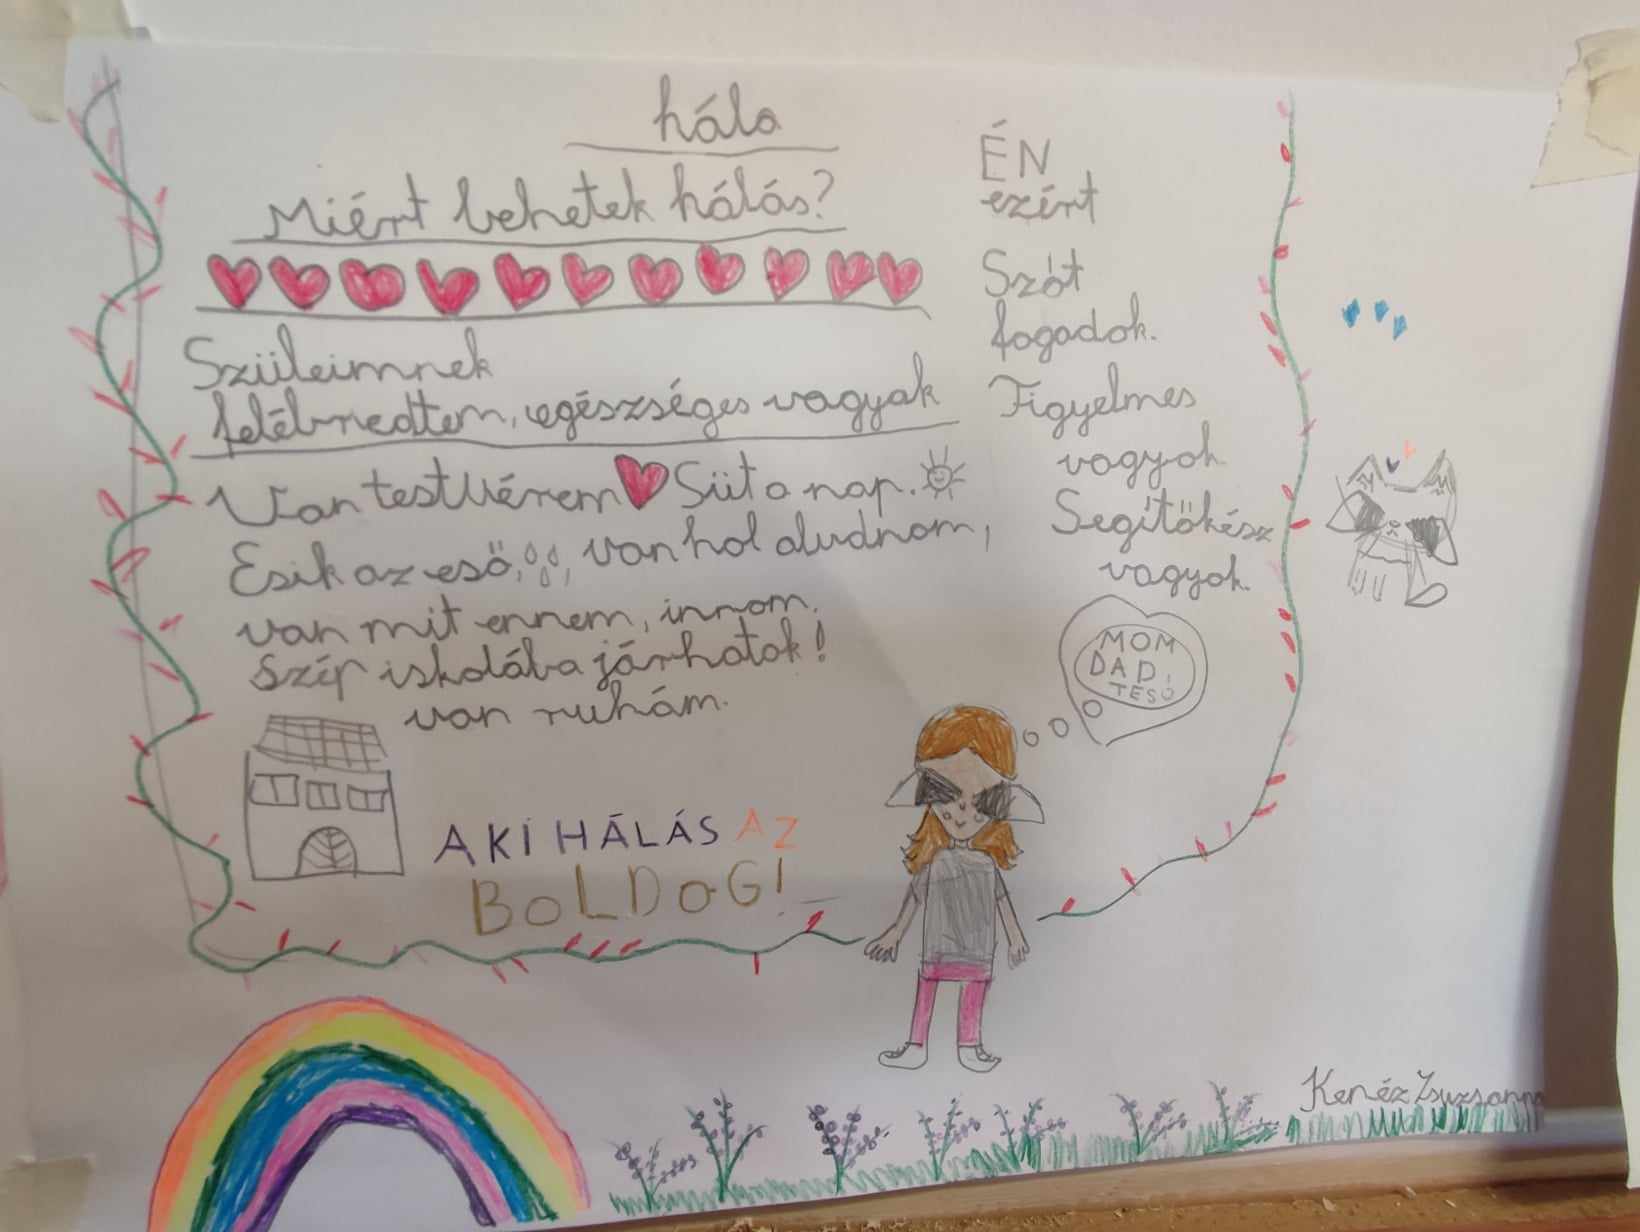 hála
Miért lehetek hálás?
Szüleimnek
felébredtem, egészséges vagyok
Van testvérem Süt a nap.
Esik az eső, van hol aludnom,
van mit ennem, innom.
Szép iskolába járhatok!
van ruhám.
AKI HÁLÁS AZ
BOLDOG!
ÉN
ezért
Szót
fogadok.
Figyelmes
vagyok
Segítőkész
vagyok.
MOM
DAD,
TESÓ
Kenéz Zsuzsanna